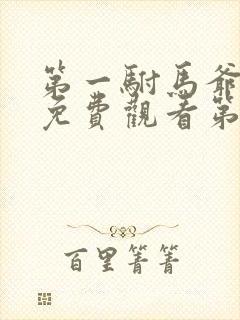 第一駙馬爺
免費觀看第
百里菁菁